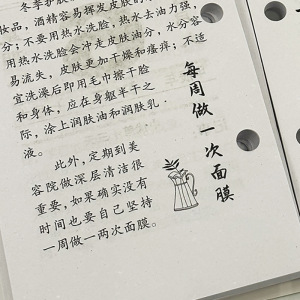 冬季护肤
妆品，酒精容易挥发皮肤的水
分；不要用热水洗脸，热水去油力强，
用热水洗脸会冲走皮肤油分，水分容
易流失，皮肤更加干燥和瘙痒；不适
宜洗澡后即用毛巾擦干脸
和身体，应在身躯半干之
际，涂上润肤油和润肤乳
液。
此外，定期到美
容院做深层清洁很
重要，如果确实没有
时间也要自己坚持
一周做一两次面膜。
每周做一次面膜